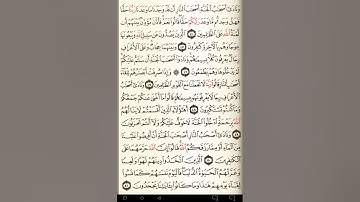 وَنَادَىٰٓ أَصۡحَٰبُ ٱلۡجَنَّةِ أَصۡحَٰبَ ٱلنَّارِ أَن قَدۡ وَجَدۡنَا مَا وَعَدَنَا رَبُّنَا حَقّٗا
فَهَلۡ وَجَدتُّم مَّا وَعَدَ رَبُّكُمۡ حَقّٗاۖ قَالُواْ نَعَمۡۚ فَأَذَّنَ مُؤَذِّنُۢ بَيۡنَهُمۡ أَن
لَّعۡنَةُ ٱللَّهِ عَلَى ٱلظَّٰلِمِينَ ٤٤ ٱلَّذِينَ يَصُدُّونَ عَن سَبِيلِ ٱللَّهِ وَيَبۡغُونَهَا
عِوَجٗا وَهُم بِٱلۡأٓخِرَةِ كَٰفِرُونَ ٤٥ وَبَيۡنَهُمَا حِجَابٞۚ وَعَلَى ٱلۡأَعۡرَافِ
رِجَالٞ يَعۡرِفُونَ كُلَّۢا بِسِيمَىٰهُمۡۚ وَنَادَوۡاْ أَصۡحَٰبَ ٱلۡجَنَّةِ أَن سَلَٰمٌ عَلَيۡكُمۡۚ
لَمۡ يَدۡخُلُوهَا وَهُمۡ يَطۡمَعُونَ ٤٦ ۞ وَإِذَا صُرِفَتۡ أَبۡصَٰرُهُمۡ تِلۡقَآءَ أَصۡحَٰبِ
ٱلنَّارِ قَالُواْ رَبَّنَا لَا تَجۡعَلۡنَا مَعَ ٱلۡقَوۡمِ ٱلظَّٰلِمِينَ ٤٧ وَنَادَىٰٓ أَصۡحَٰبُ
ٱلۡأَعۡرَافِ رِجَالٗا يَعۡرِفُونَهُم بِسِيمَىٰهُمۡ قَالُواْ مَآ أَغۡنَىٰ عَنكُمۡ جَمۡعُكُمۡ
وَمَا كُنتُمۡ تَسۡتَكۡبِرُونَ ٤٨ أَهَٰٓؤُلَآءِ ٱلَّذِينَ أَقۡسَمۡتُمۡ لَا يَنَالُهُمُ
ٱللَّهُ بِرَحۡمَةٍۚ ٱدۡخُلُواْ ٱلۡجَنَّةَ لَا خَوۡفٌ عَلَيۡكُمۡ وَلَآ أَنتُمۡ تَحۡزَنُونَ
٤٩ وَنَادَىٰٓ أَصۡحَٰبُ ٱلنَّارِ أَصۡحَٰبَ ٱلۡجَنَّةِ أَنۡ أَفِيضُواْ عَلَيۡنَا
مِنَ ٱلۡمَآءِ أَوۡ مِمَّا رَزَقَكُمُ ٱللَّهُۚ قَالُوٓاْ إِنَّ ٱللَّهَ حَرَّمَهُمَا عَلَى
ٱلۡكَٰفِرِينَ ٥٠ ٱلَّذِينَ ٱتَّخَذُواْ دِينَهُمۡ لَهۡوٗا وَلَعِبٗا
وَغَرَّتۡهُمُ ٱلۡحَيَوٰةُ ٱلدُّنۡيَاۚ فَٱلۡيَوۡمَ نَنسَىٰهُمۡ كَمَا نَسُواْ
لِقَآءَ يَوۡمِهِمۡ هَٰذَا وَمَا كَانُواْ بِـَٔايَٰتِنَا يَجۡحَدُونَ ٥١